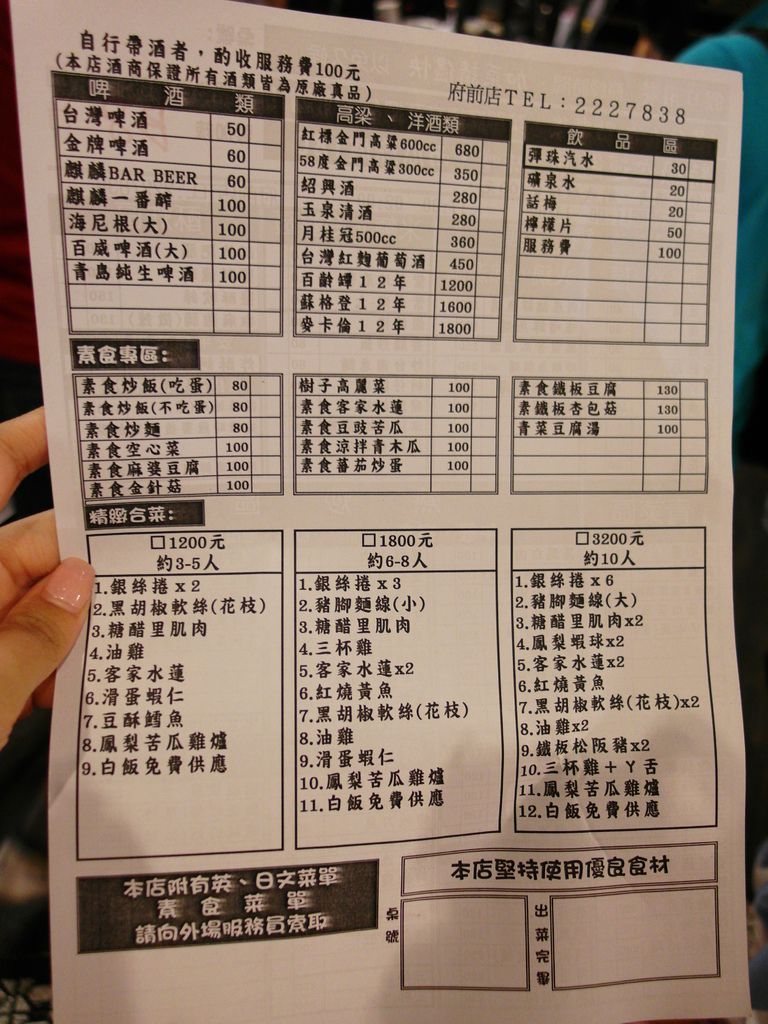 自行帶酒者，酌收服務費100元
(本店酒商保證所有酒類皆為原廠真品)
府前店TEL：2227838
啤酒類
台灣啤酒 50
金牌啤酒 60
麒麟BAR BEER 60
麒麟一番醉 100
海尼根(大) 100
百威啤酒(大) 100
青島純生啤酒 100
高粱、洋酒類
紅標金門高粱600cc 680
58度金門高粱300cc 350
紹興酒 280
玉泉清酒 280
月桂冠500cc 360
台灣紅麴葡萄酒 450
百齡罈12年 1200
蘇格登12年 1600
麥卡倫12年 1800
飲品區
彈珠汽水 30
礦泉水 20
話梅 20
檸檬片 50
服務費 100
素食專區：
素食炒飯(吃蛋) 80
素食炒飯(不吃蛋) 80
素食炒麵 80
素食空心菜 100
素食麻婆豆腐 100
素食金針菇 100
樹子高麗菜 100
素食客家水蓮 100
素食豆豉苦瓜 100
素食涼拌青木瓜 100
素食蕃茄炒蛋 100
素食鐵板豆腐 130
素鐵板杏包菇 130
青菜豆腐湯 100
精緻合菜：
□1200元
約3-5人
1.銀絲捲x2
2.黑胡椒軟絲(花枝)
3.糖醋里肌肉
4.油雞
5.客家水蓮
6.滑蛋蝦仁
7.豆酥鱈魚
8.鳳梨苦瓜雞爐
9.白飯免費供應
□1800元
約6-8人
1.銀絲捲x3
2.豬腳麵線(小)
3.糖醋里肌肉
4.三杯雞
5.客家水蓮x2
6.紅燒黃魚
7.黑胡椒軟絲(花枝)
8.油雞
9.滑蛋蝦仁
10.鳳梨苦瓜雞爐
11.白飯免費供應
□3200元
約10人
1.銀絲捲x6
2.豬腳麵線(大)
3.糖醋里肌肉x2
4.鳳梨蝦球x2
5.客家水蓮x2
6.紅燒黃魚
7.黑胡椒軟絲(花枝)x2
8.油雞x2
9.鐵板松阪豬x2
10.三杯雞＋Y舌
11.鳳梨苦瓜雞爐
12.白飯免費供應
本店附有英、日文菜單
素食菜單
請向外場服務員索取
本店堅持使用優良食材
桌號
出菜完畢